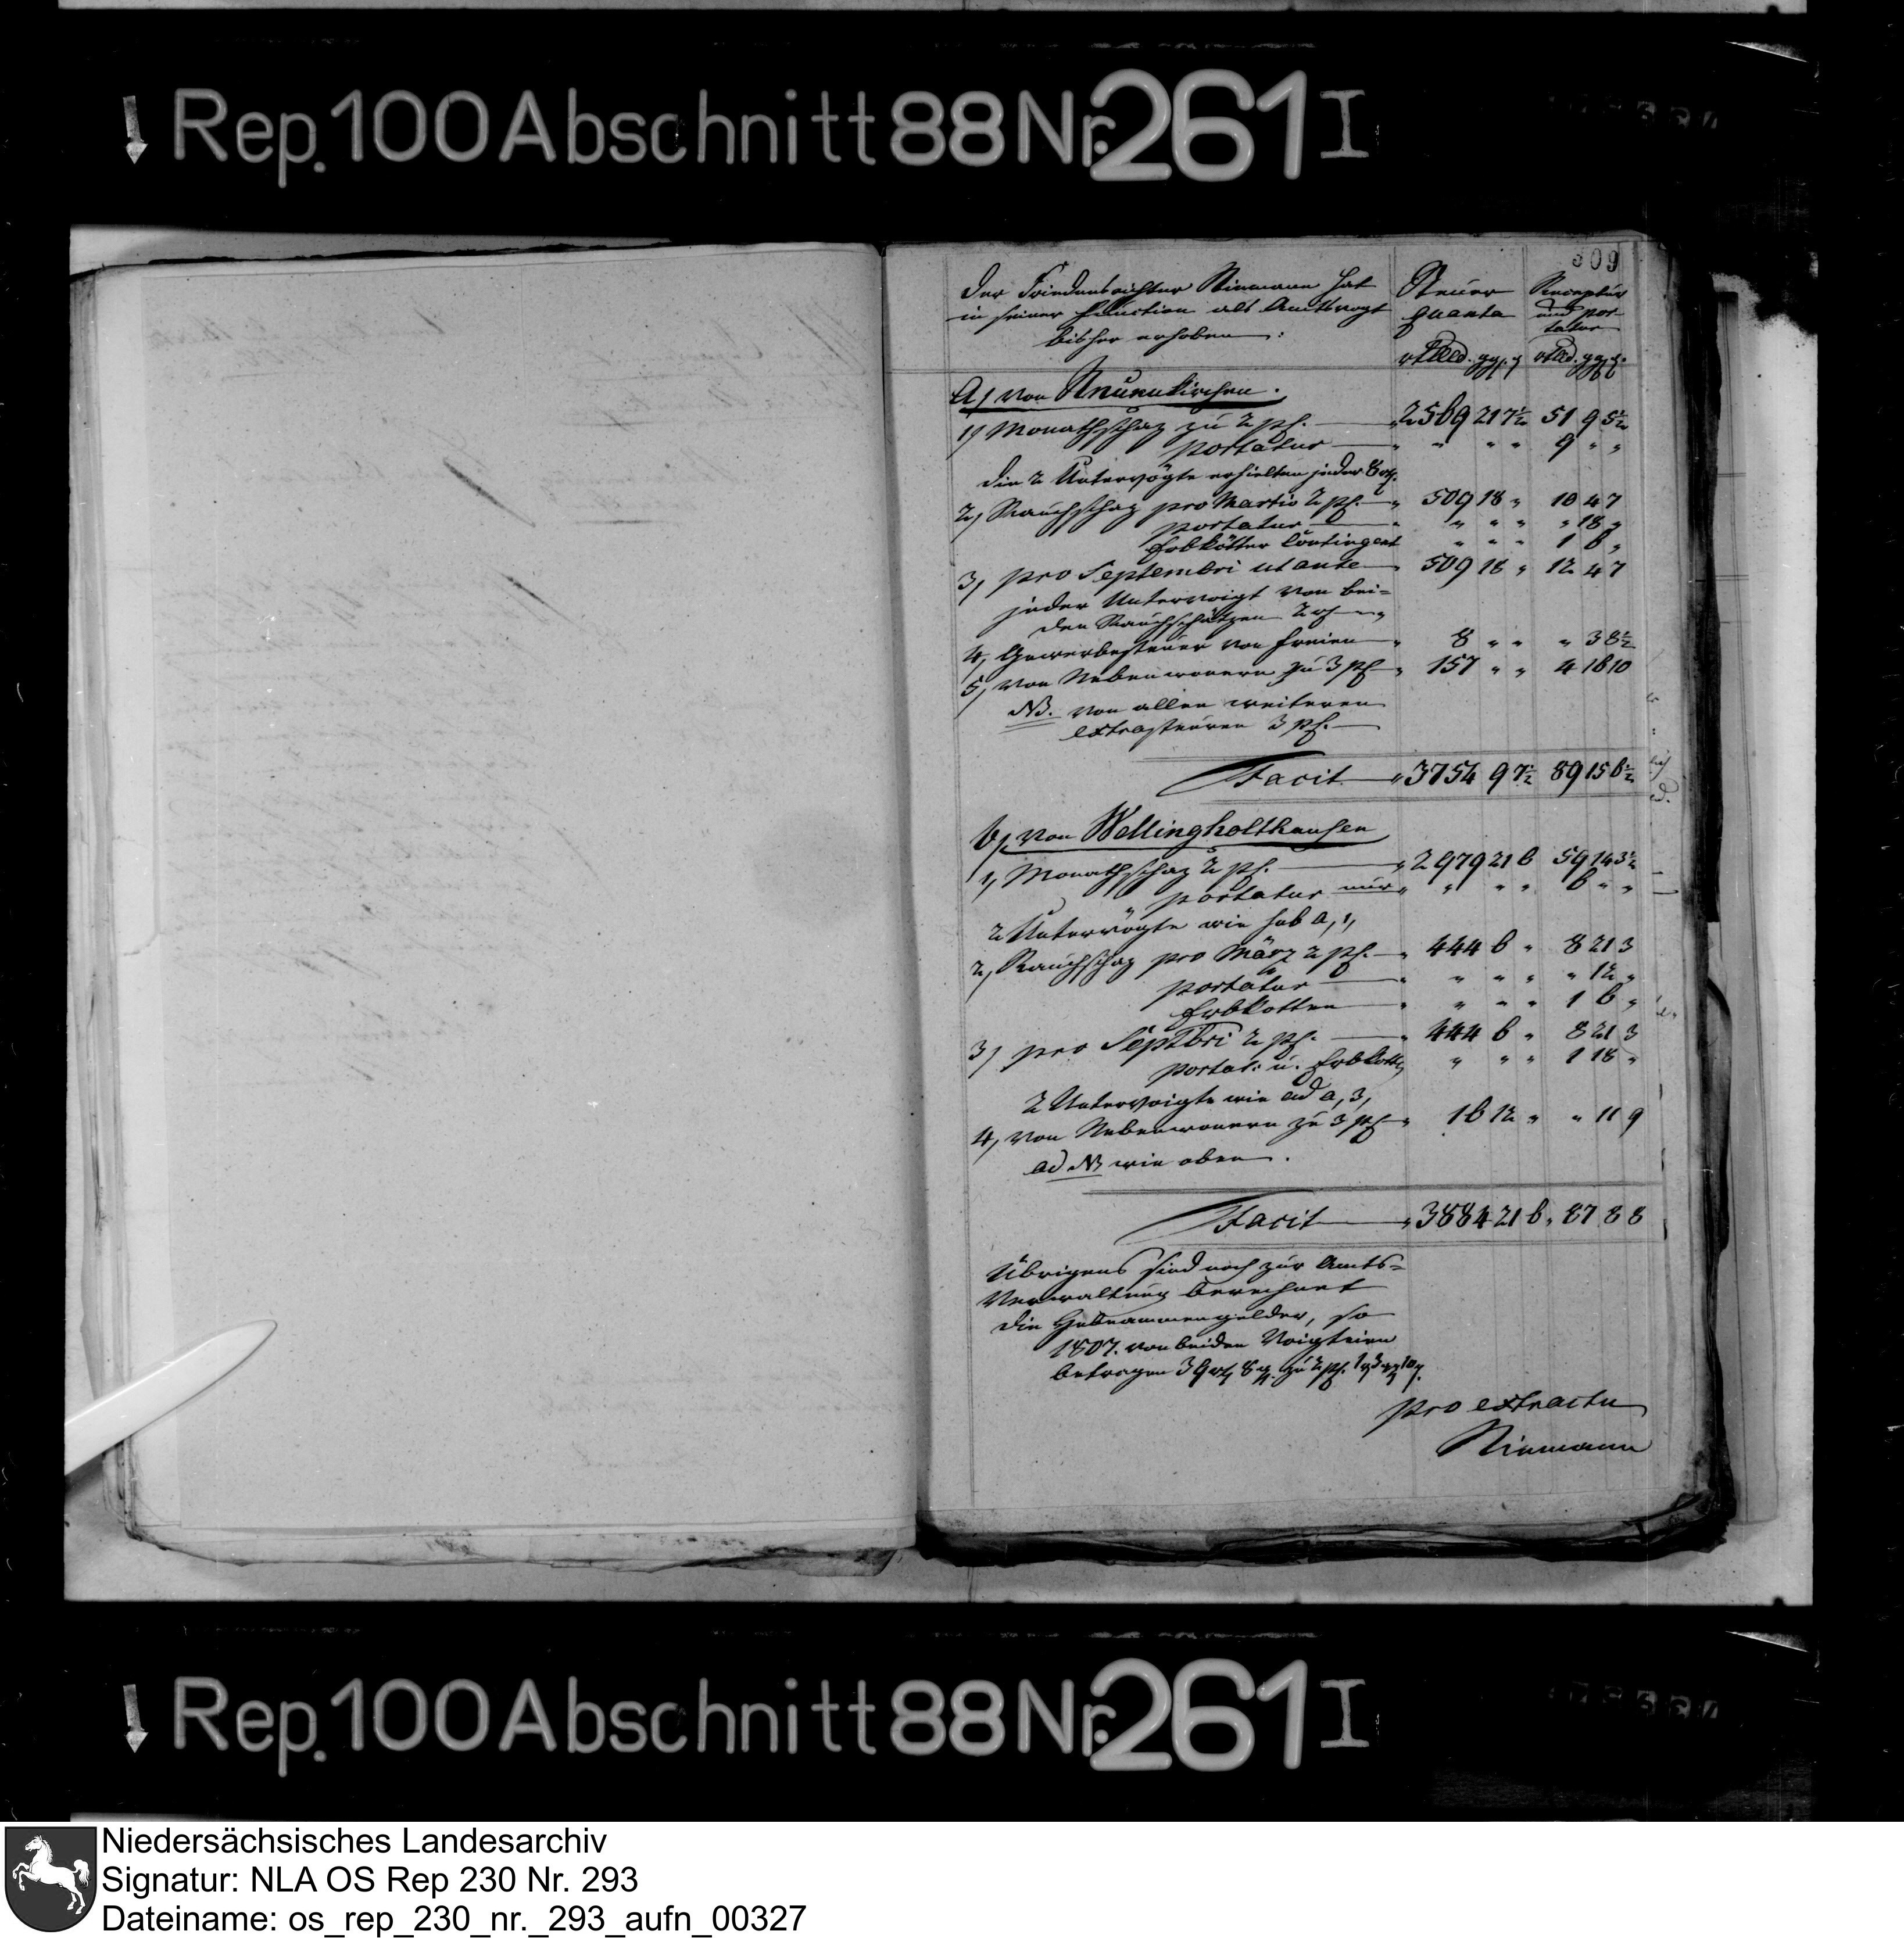 Rep. 100 Abschnitt 88 Nr. 261 I
309
Der Friedensrichter Niemann hat
in seiner Function als Amtsvogt
bisher erhoben:
Steuer
quanta
Receptur
und por-
tatur
rthld. ggl. ₰ rthld. ggl. ₰
A) von Neuenkirchen.
1) Monathschaz zu 2 pf. — " 2569 21 7½ 51 9 5½
portatur — " " " " 9 " "
die 2 Untervögte erhielten jeder 8 rth.
2) Rauchschaz pro Martio 2 pf. — " 509 18 " 10 4 7
portatur — " " " " " 18 "
Erbkötter Contingent " " " 1 6 "
3) pro Septembri ut ante — 509 18 " 12 4 7
jeder Untervoigt von bei-
den Rauchschätzen 2 rth — " "
4) Gewerbesteuer von Freien — " 8 " " " 3 8½
5) von Nebenwonern zu 3 pf — " 157 " " 4 16 10
NB. von allen weiteren
extrasteuren 3 pf. —
Facit — " 3754 9 7½ 89 15 6½
b) von Wellingholthausen
1) Monathschaz 2 pf. — " 2979 21 6 59 14 3½
portatur nur " " " " 6 " "
2 Untervögte wie sub a, 1,
2) Rauchschaz pro März 2 pf. — " 444 6 " 8 21 3
portatur — " " " " " 12 "
Erbkotten — " " " " 1 6 "
3) pro Septbri 2 pf. — " 444 6 " 8 21 3
portat. u. Erbkotten " " " 1 18 "
2 Untervoigte wie ad a, 3,
4) von Nebenwonern zu 3 pf — " 16 12 " " 11 9
ad NB wie oben.
Facit — " 3884 21 6 " 87 8 8
Übrigens sind noch zur Amts-
Verwaltung berechnet
die Hebammengelder, so
1807. von beiden Voigteien
betragen 39 rth 8 ggl. zu 2 pf.
pro extractu
Niemann
Rep. 100 Abschnitt 88 Nr. 261 I
Niedersächsisches Landesarchiv
Signatur: NLA OS Rep 230 Nr. 293
Dateiname: os_rep_230_nr._293_aufn_00327